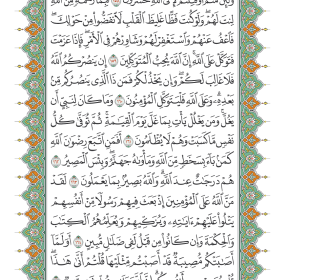 لِنتَ لَهُمْ وَلَوْ كُنتَ فَظًّا غَلِيظَ الْقَلْبِ لَانفَضُّوا مِنْ حَوْلِكَ
فَاعْفُ عَنْهُمْ وَاسْتَغْفِرْ لَهُمْ وَشَاوِرْهُمْ فِي الْأَمْرِ فَإِذَا عَزَمْتَ
فَتَوَكَّلْ عَلَى اللَّهِ إِنَّ اللَّهَ يُحِبُّ الْمُتَوَكِّلِينَ ١٥٩ إِن يَنصُرْكُمُ اللَّهُ
فَلَا غَالِبَ لَكُمْ وَإِن يَخْذُلْكُمْ فَمَن ذَا الَّذِي يَنصُرُكُم مِّن
بَعْدِهِ وَعَلَى اللَّهِ فَلْيَتَوَكَّلِ الْمُؤْمِنُونَ ١٦٠ وَمَا كَانَ لِنَبِيٍّ أَن
يَغُلَّ وَمَن يَغْلُلْ يَأْتِ بِمَا غَلَّ يَوْمَ الْقِيَامَةِ ثُمَّ تُوَفَّى كُلُّ
نَفْسٍ مَّا كَسَبَتْ وَهُمْ لَا يُظْلَمُونَ ١٦١ أَفَمَنِ اتَّبَعَ رِضْوَانَ اللَّهِ
كَمَن بَاءَ بِسَخَطٍ مِّنَ اللَّهِ وَمَأْوَاهُ جَهَنَّمُ وَبِئْسَ الْمَصِيرُ ١٦٢
هُمْ دَرَجَاتٌ عِندَ اللَّهِ وَاللَّهُ بَصِيرٌ بِمَا يَعْمَلُونَ ١٦٣ لَقَدْ
مَنَّ اللَّهُ عَلَى الْمُؤْمِنِينَ إِذْ بَعَثَ فِيهِمْ رَسُولًا مِّنْ أَنفُسِهِمْ
يَتْلُوا عَلَيْهِمْ آيَاتِهِ وَيُزَكِّيهِمْ وَيُعَلِّمُهُمُ الْكِتَابَ
وَالْحِكْمَةَ وَإِن كَانُوا مِن قَبْلُ لَفِي ضَلَالٍ مُّبِينٍ ١٦٤ أَوَلَمَّا
أَصَابَتْكُم مُّصِيبَةٌ قَدْ أَصَبْتُم مِّثْلَيْهَا قُلْتُمْ أَنَّى هَٰذَا